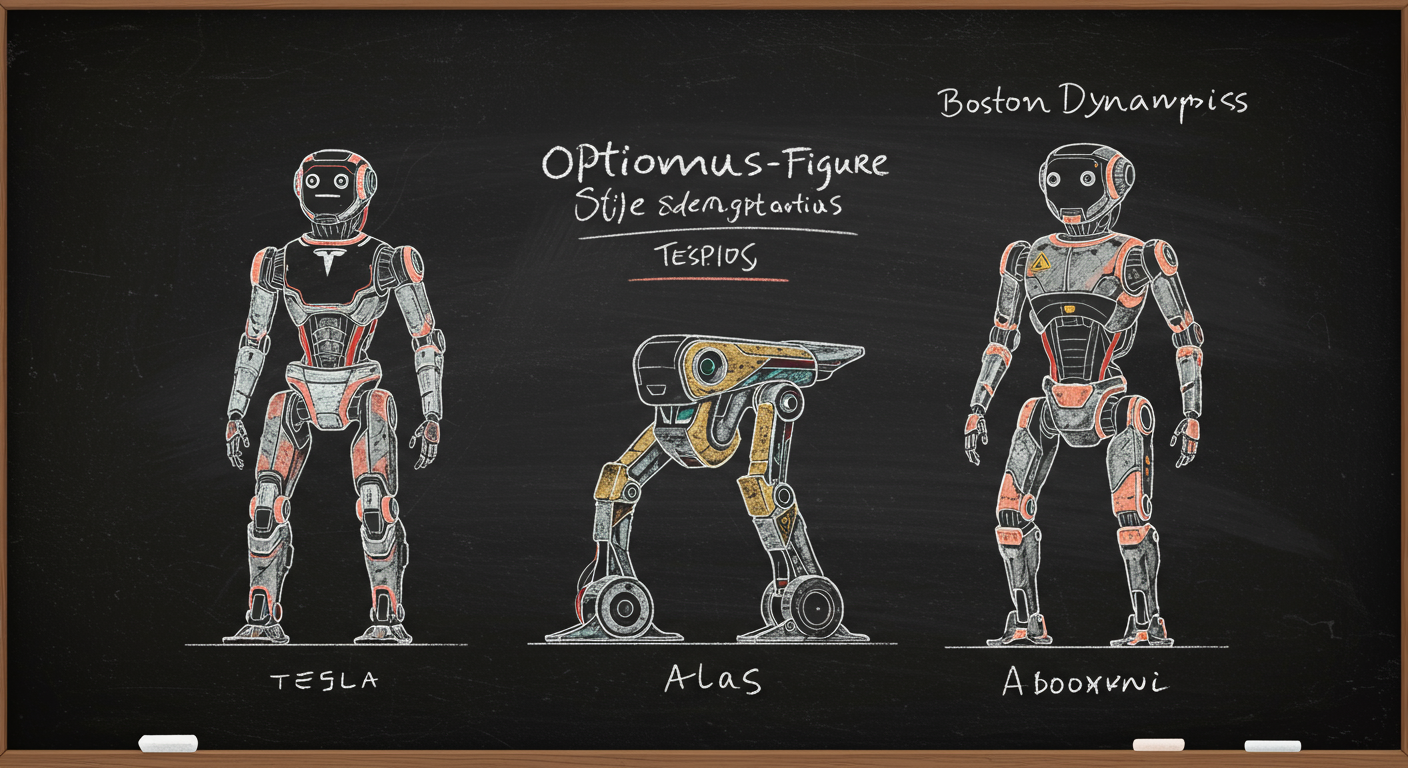 Boston Dynanpiss
OPtiomus-Figure
Stije sdem.gptantius
TESPIOS
TESLA
ALas
Abooxvni